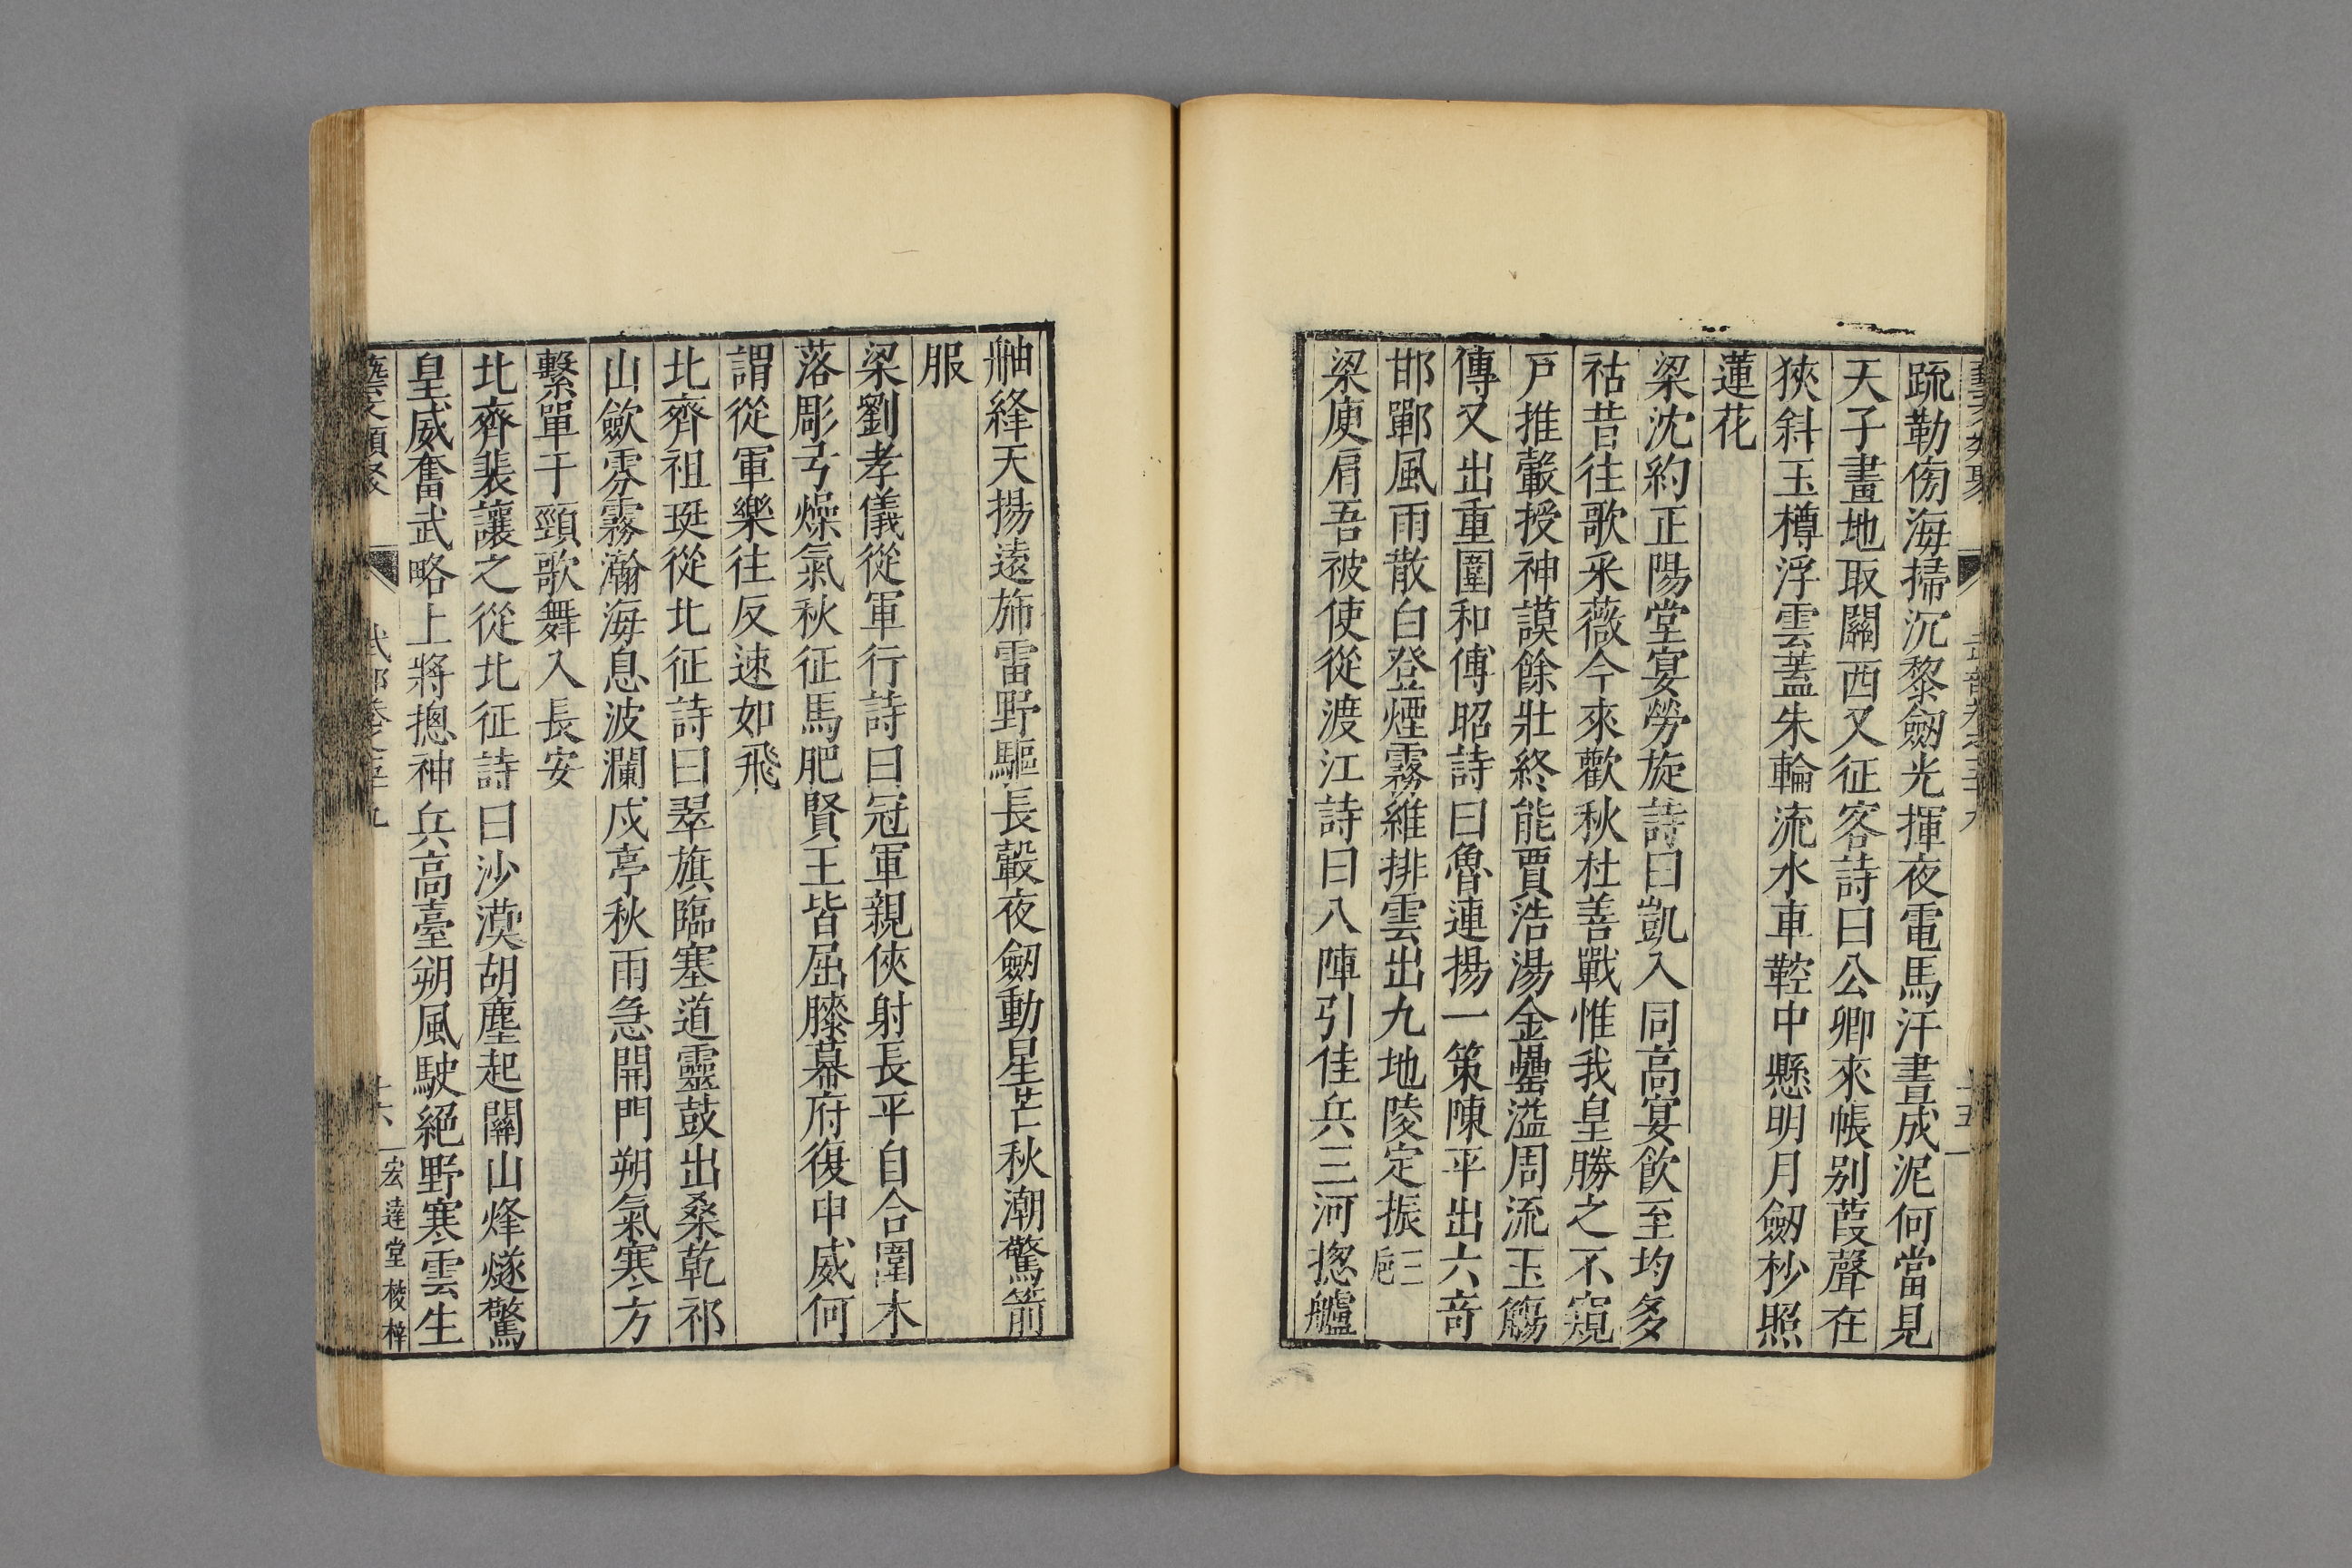 疏勒傍海掃沉黎劒光揮夜電馬汗晝成泥何當見
天子畫地取關西又征客詩曰公卿來帳别葭聲在
狹斜玉樽浮雲蓋朱輪流水車鞚中懸明月劒杪照
蓮花
梁沈約正陽堂宴勞旋詩曰凱入同高宴飲至均多
祜昔往歌采薇今來歡秋杜善戰惟我皇勝之不窺
戸推轂授神謨餘壯終能賈浩湯金罍溢周流玉觴
傳又出重圍和傅昭詩曰魯連揚一策陳平出六奇
邯鄲風雨散白登煙霧維排雲出九地陵定振三巵
梁庾肩吾被使從渡江詩曰八陣引佳兵三河揔艫
舳絳天揚遠斾雷野驅長轂夜劒動星芒秋潮驚箭
服
梁劉孝儀從軍行詩曰冠軍親俠射長平自合圍木
落彫弓燥氣秋征馬肥賢王皆屈膝幕府復申威何
謂從軍樂往反速如飛
北齊祖珽從北征詩曰翠旗臨塞道靈鼓出桑乾祁
山歛雰霧瀚海息波瀾戍亭秋雨急開門朔氣寒方
繫單于頸歌舞入長安
北齊裴讓之從北征詩曰沙漠胡塵起關山烽燧驚
皇威奮武略上將摠神兵高臺朔風駛絕野寒雲生
宏達堂校梓